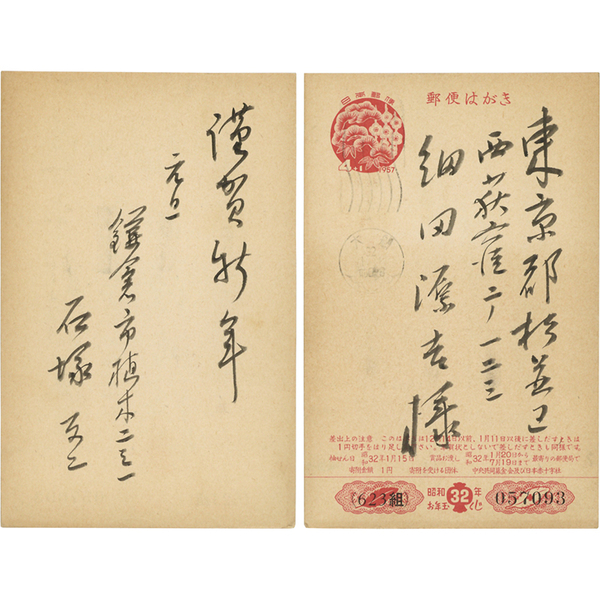 謹賀新年
元旦
鎌倉市植木二三一
石塚友二
日本郵便
4+1
1957
郵便はがき
東京都杉並区
西荻窪二ノ一二三
細田源吉様
差出上の注意 このはがきは12月14日以前、1月11日以後に差しだすときは
1円切手をはり足してください。年賀状としないで差しだすときも同様です。
抽せんは 昭和32年1月15日 賞品お渡し 昭和32年1月20日から7月19日まで 最寄りの郵便局で
寄附金額 1円 寄附を受ける団体 中央共同募金会及び日本赤十字社
623組
昭和32年
お年玉
057093